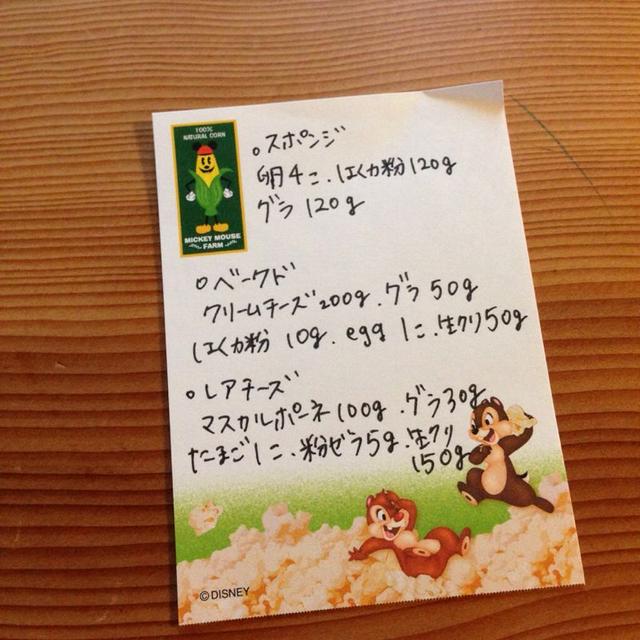 100%
NATURAL CORN
MICKEY MOUSE
FARM
。スポンジ
卵4コ.はくカ粉120g
グラ120g
○ベークド
クリームチーズ200g.グラ50g
はくカ粉 10g. egg 1コ.生クリ50g
○レアチーズ
マスカルポーネ100g.グラ30g
たまご1コ.粉ゼラ5g.生クリ
150g
©DISNEY